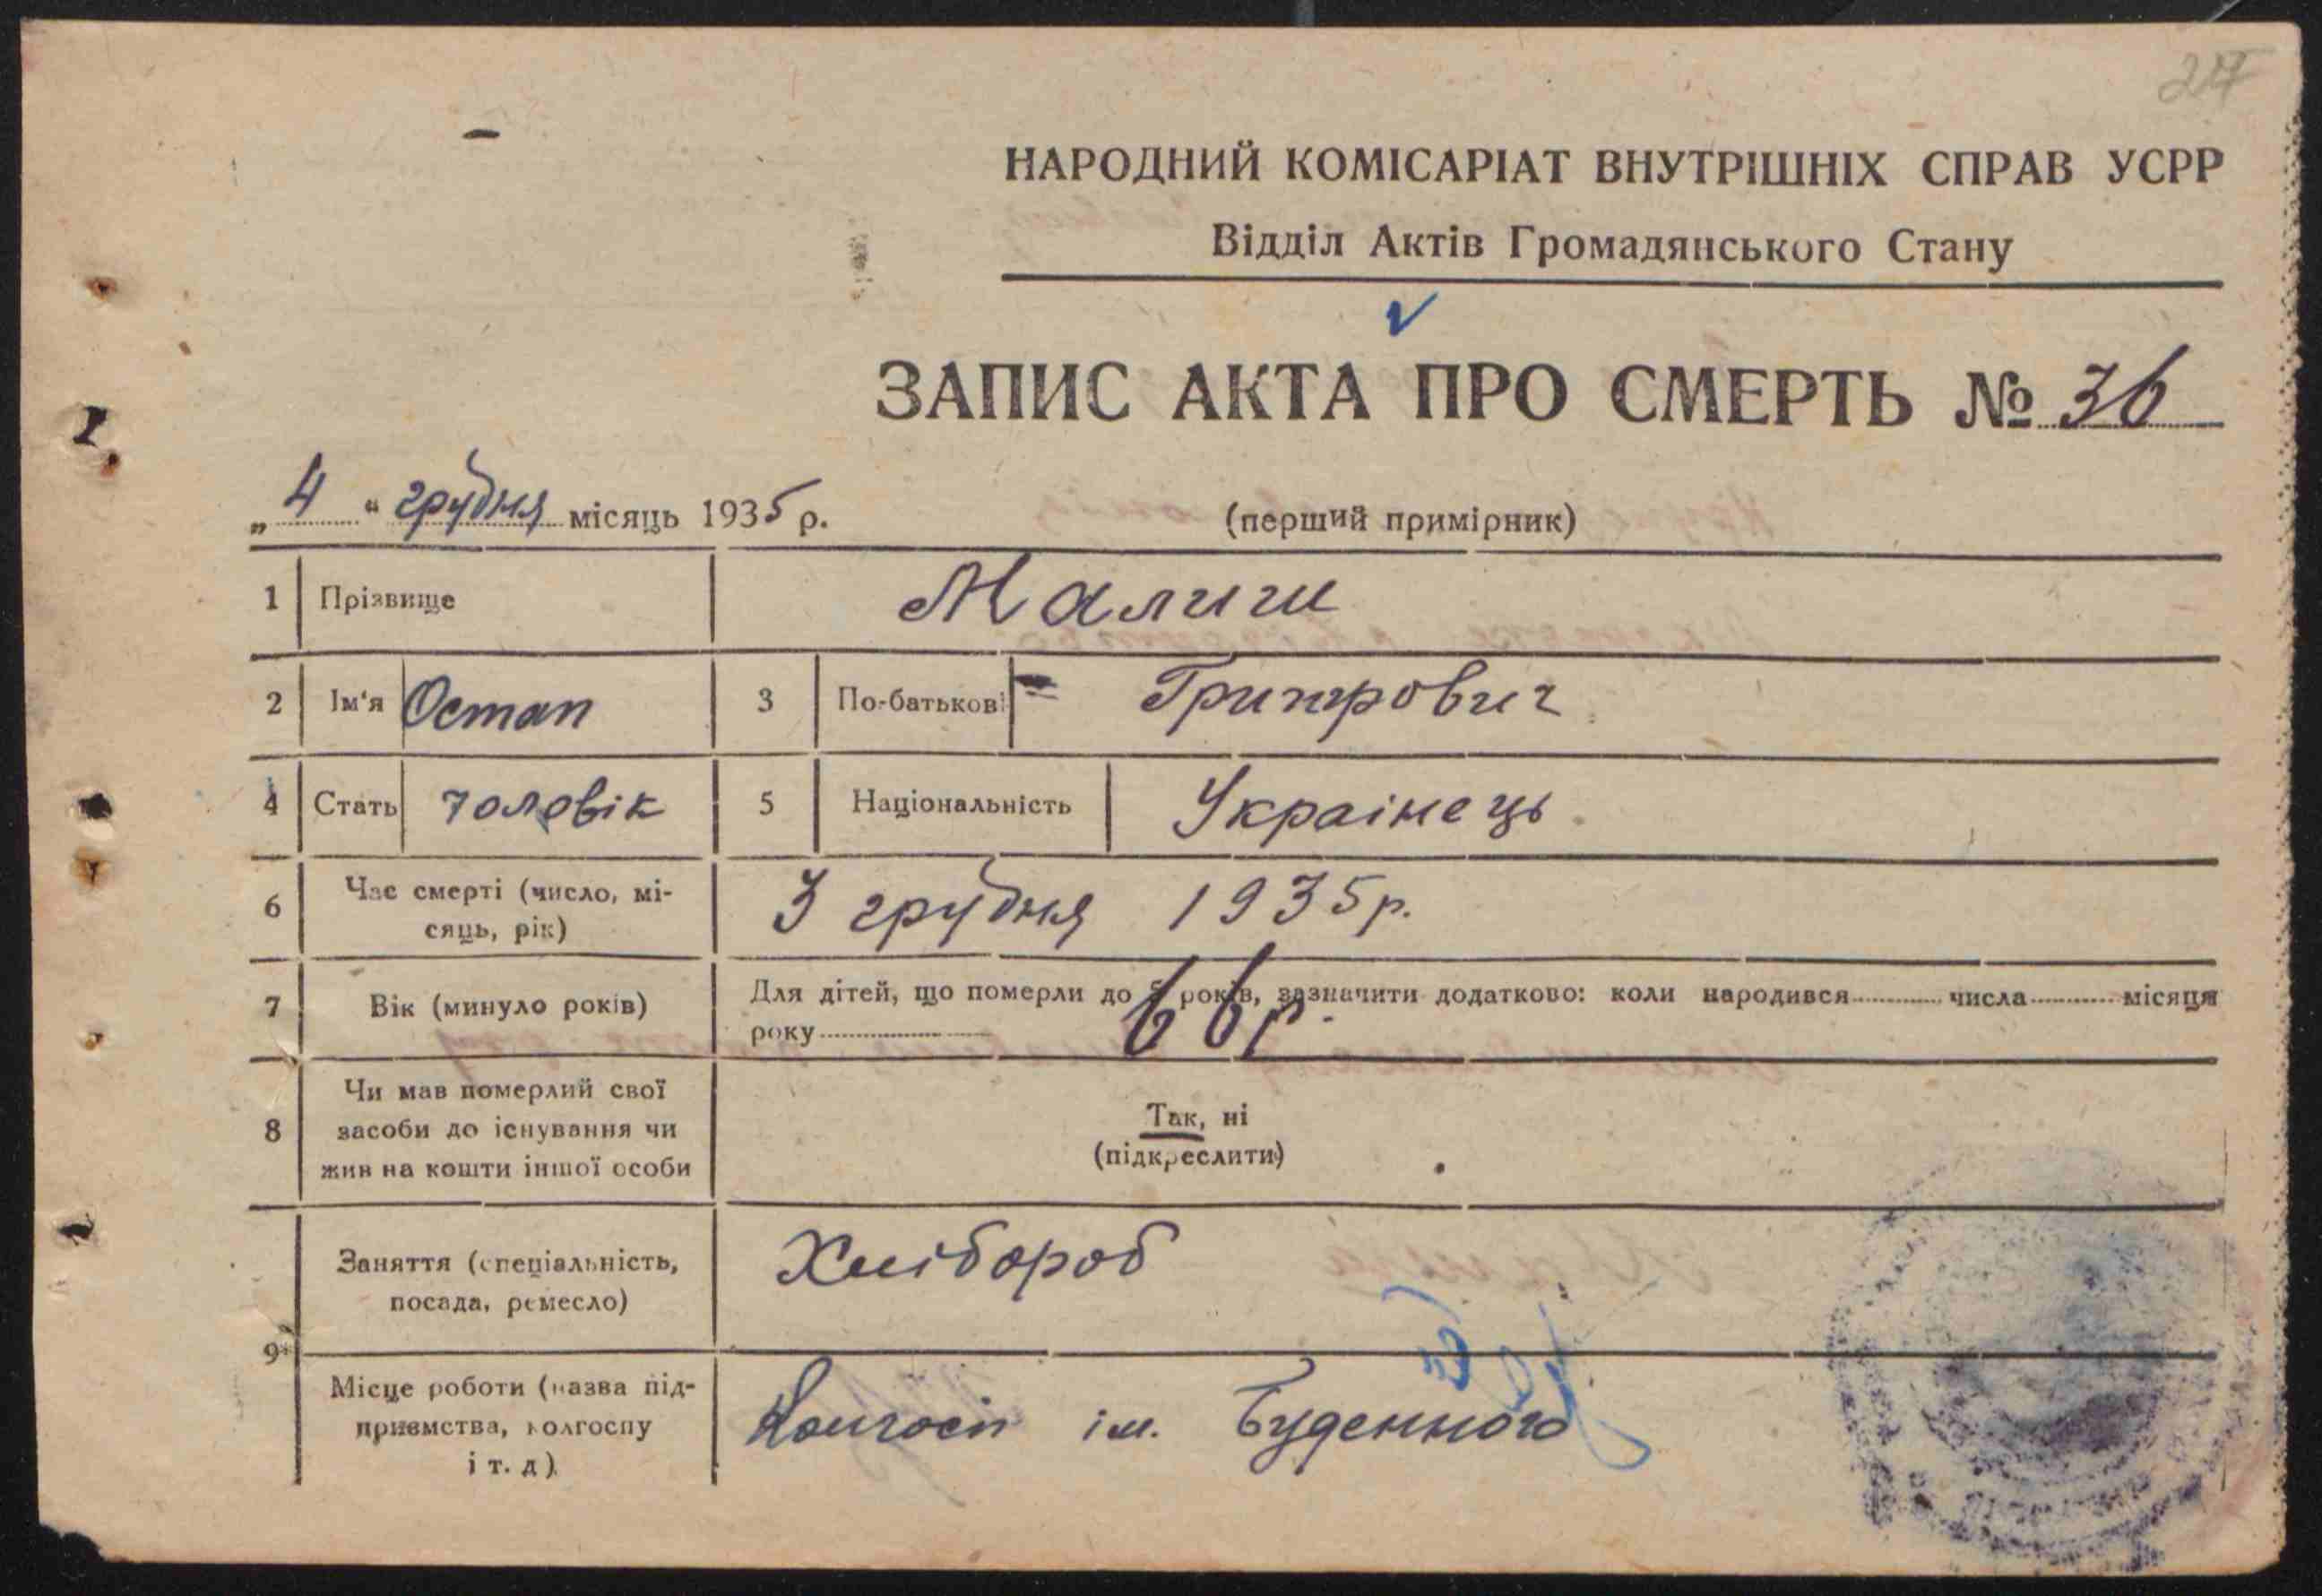 217
НАРОДНИЙ КОМІСАРІАТ ВНУТРІШНІХ СПРАВ УСРР
Відділ Актів Громадянського Стану
ЗАПИС АКТА ПРО СМЕРТЬ № 36
„4“ грудня місяць 1935 р.
(перший примірник)
1 Прізвище Малиш
2 Ім'я Остап 3 По-батькові Григорович
4 Стать чоловік 5 Національність Українець
6 Час смерті (число, мі-
сяць, рік) 3 грудня 1935 р.
7 Вік (минуло років) Для дітей, що померли до 5 років, зазначити додатково: коли народився числа місяця
року 66 р.
8 Чи мав померлий свої
засоби до існування чи
жив на кошти іншої особи
Так, ні
(підкреслити)
9 Заняття (спеціальність,
посада, ремесло) Хлібороб
Місце роботи (назва під-
приємства, колгоспу
і т. д.) Колгосп ім. Буденного